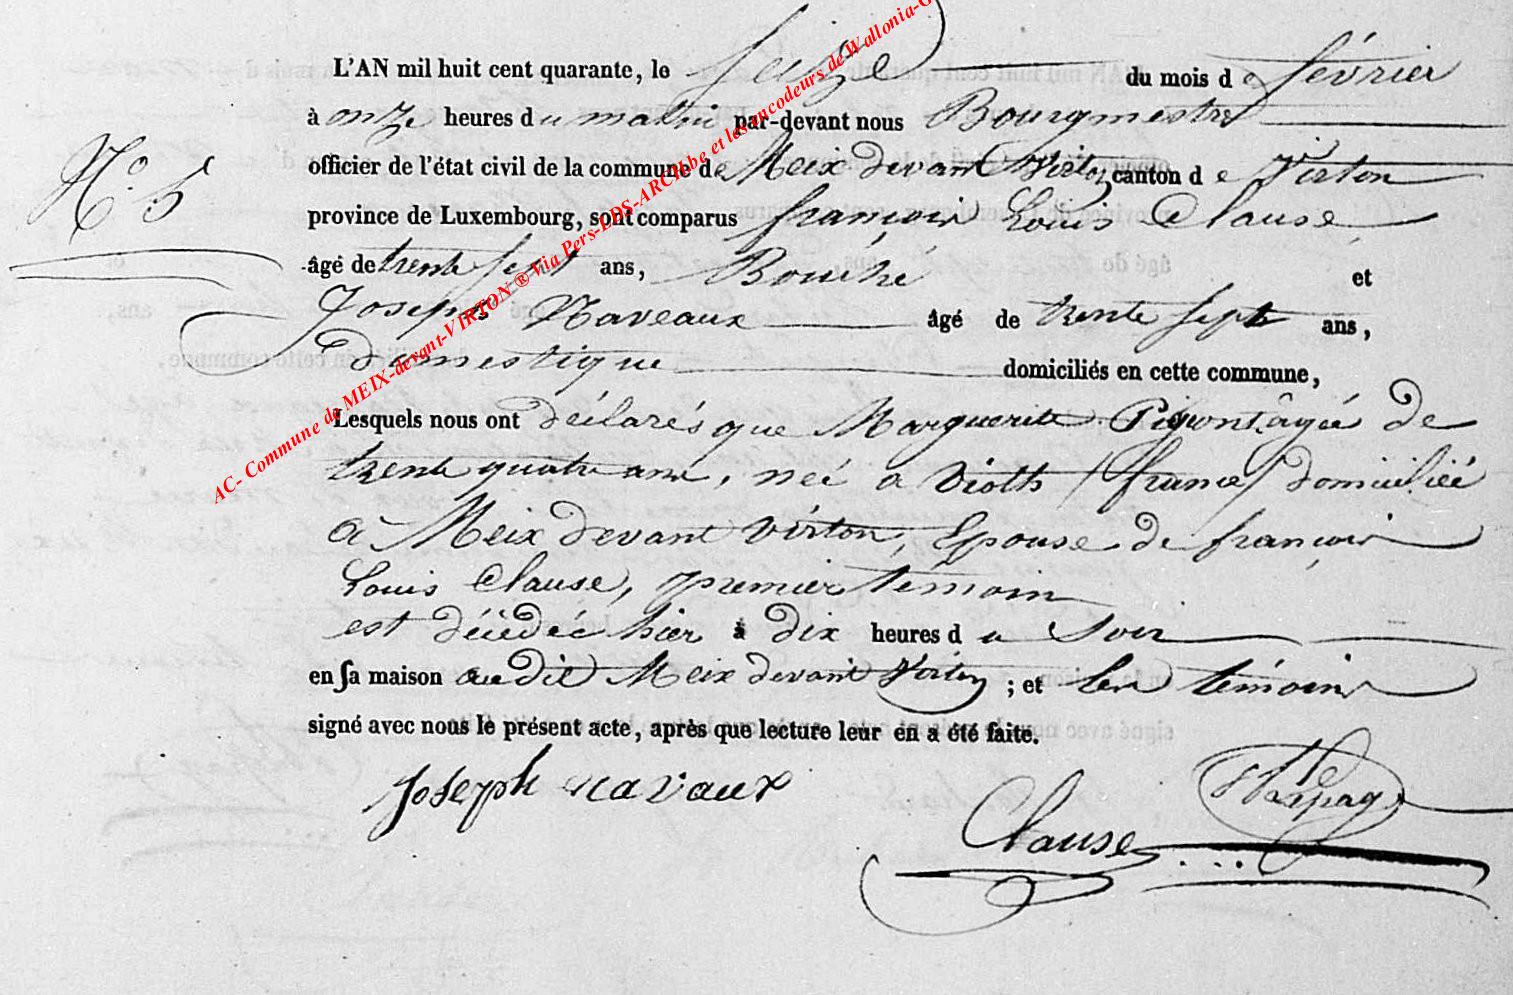 L'AN mil huit cent quarante, le seize du mois de février
à onze heures du matin par-devant nous Bourgmestre
officier de l'état civil de la commune de Meix devant Virton canton de Virton
N.° 5
province de Luxembourg, sont comparus françois Louis Clause
âgé de trente sept ans, Bouché et
Joseph Naveaux âgé de trente sept ans,
Domestique domiciliés en cette commune,
Lesquels nous ont déclarés que Marguerite âgée de
trente quatre ans, neé a (france) domiciliée
a Meix devant Virton, Epouse de françois
Louis Clause, premier temoin
est décédée hier à dix heures du Soir
en sa maison audit Meix devant Virton ; et les témoins
signé avec nous le présent acte, après que lecture leur en a été faite.
Joseph navaux
Clause
Lepage
AC- Commune de MEIX-devant-VIRTON ® Via Pers-LDS-ARCH.be et les encodeurs de Wallonia-G